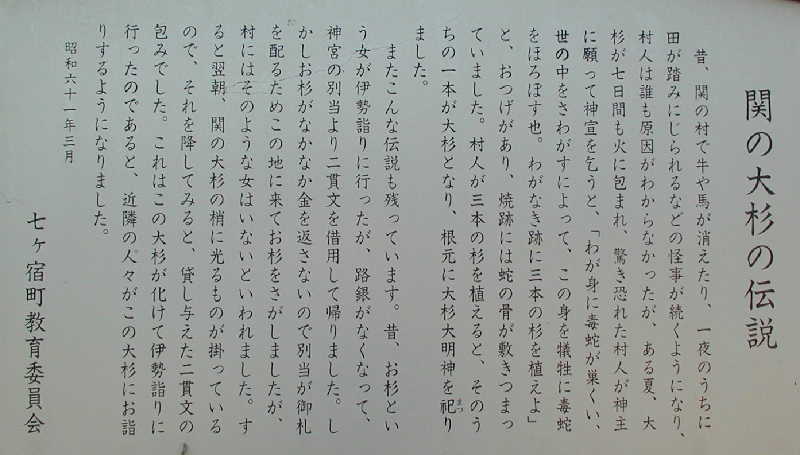 関の大杉の伝説
昔、関の村で牛や馬が消えたり、一夜のうちに
田が踏みにじられるなどの怪事が続くようになり、
村人は誰も原因がわからなかったが、ある夏、大
杉が七日間も火に包まれ、驚き恐れた村人が神主
に願って神宣を乞うと、「わが身に毒蛇が巣くい、
世の中をさわがすによって、この身を犠牲に毒蛇
をほろぼす也。わがなき跡に三本の杉を植えよ」
と、おつげがあり、焼跡には蛇の骨が敷きつまっ
ていました。村人が三本の杉を植えると、そのう
ちの一本が大杉となり、根元に大杉大明神を祀り
まつ
ました。
またこんな伝説も残っています。昔、お杉とい
う女が伊勢詣りに行ったが、路銀がなくなって、
神宮の別当より二貫文を借用して帰りました。し
かしお杉がなかなか金を返さないので別当が御札
を配るためこの地に来てお杉をさがしましたが、
村にはそのような女はいないといわれました。す
ると翌朝、関の大杉の梢に光るものが掛っている
ので、それを降してみると、貸し与えた二貫文の
包みでした。これはこの大杉が化けて伊勢詣りに
行ったのであると、近隣の人々がこの大杉にお詣
りするようになりました。
昭和六十一年三月
七ヶ宿町教育委員会